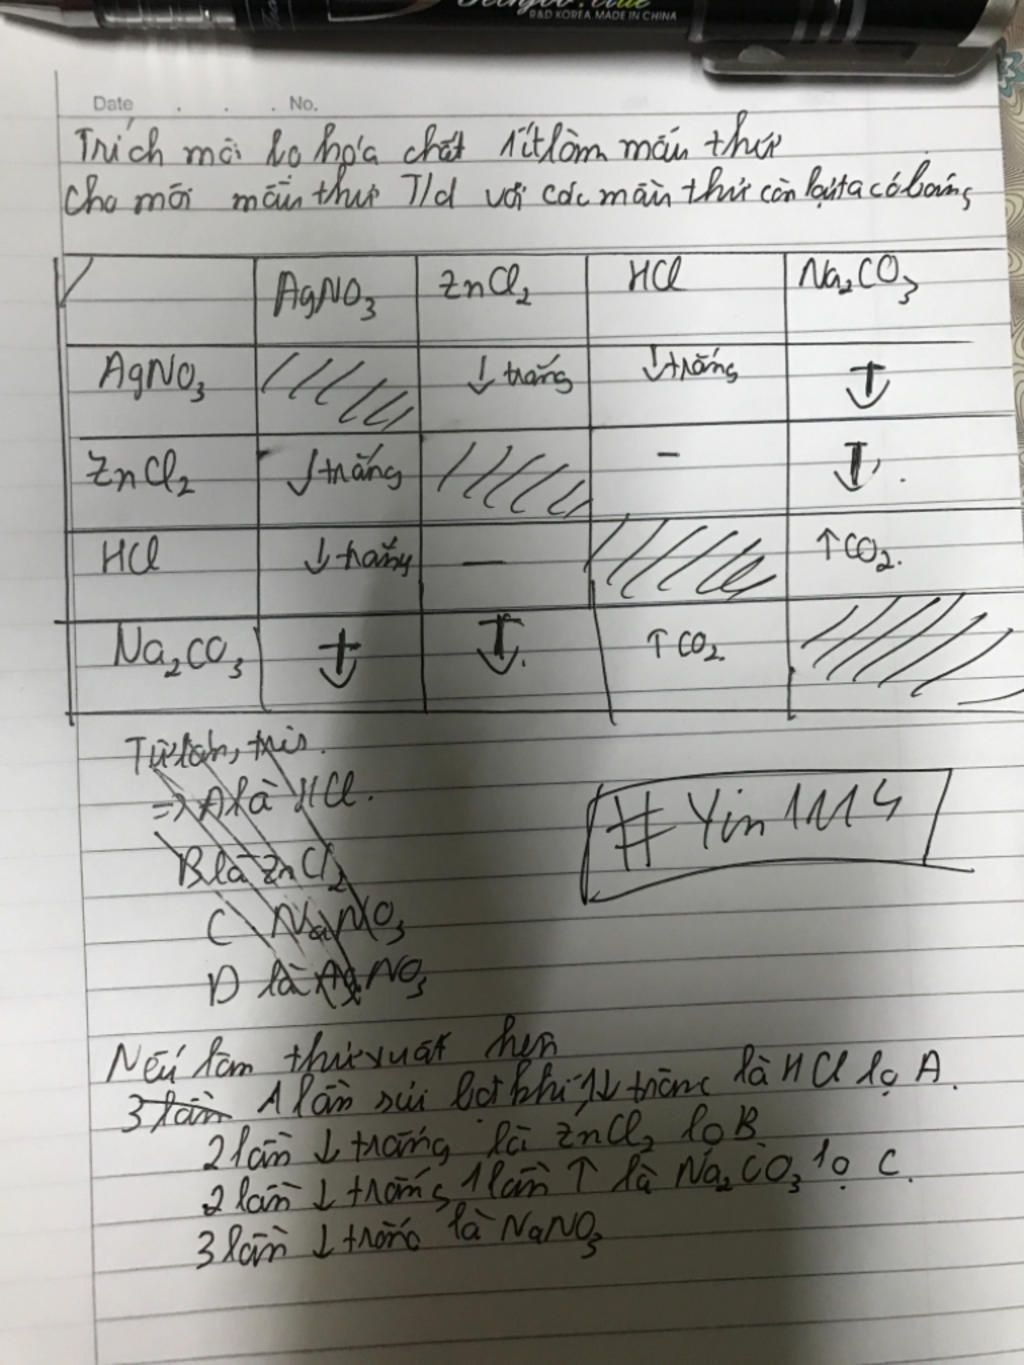 R&D KOREA. MADE IN CHINA
Date . . . No.
Trích mỗi lọ hóa chất 1 ít làm mẫu thử
Cho mỗi mẫu thử T/d với các mẫu thử còn lại ta có bảng
AgNO3 ZnCl2 HCl Na2CO3
AgNO3 ↓ trắng ↓ trắng ↓
ZnCl2 ↓ trắng – ↓
HCl ↓ trắng — ↑ CO2.
Na2CO3 ↓ ↓ ↑ CO2
=> A là HCl.
B là ZnCl2
C NaNO3
D là AgNO3
# Yin 1114
Nếu làm thử xuất hện
3 lần 1 lần sủi bọt khí, 1↓ trắng là HCl lọ A.
2 lần ↓ trắng là ZnCl2 lọ B
2 lần ↓ trắng 1 lần ↑ là Na2CO3 lọ C.
3 lần ↓ trắng là NaNO3